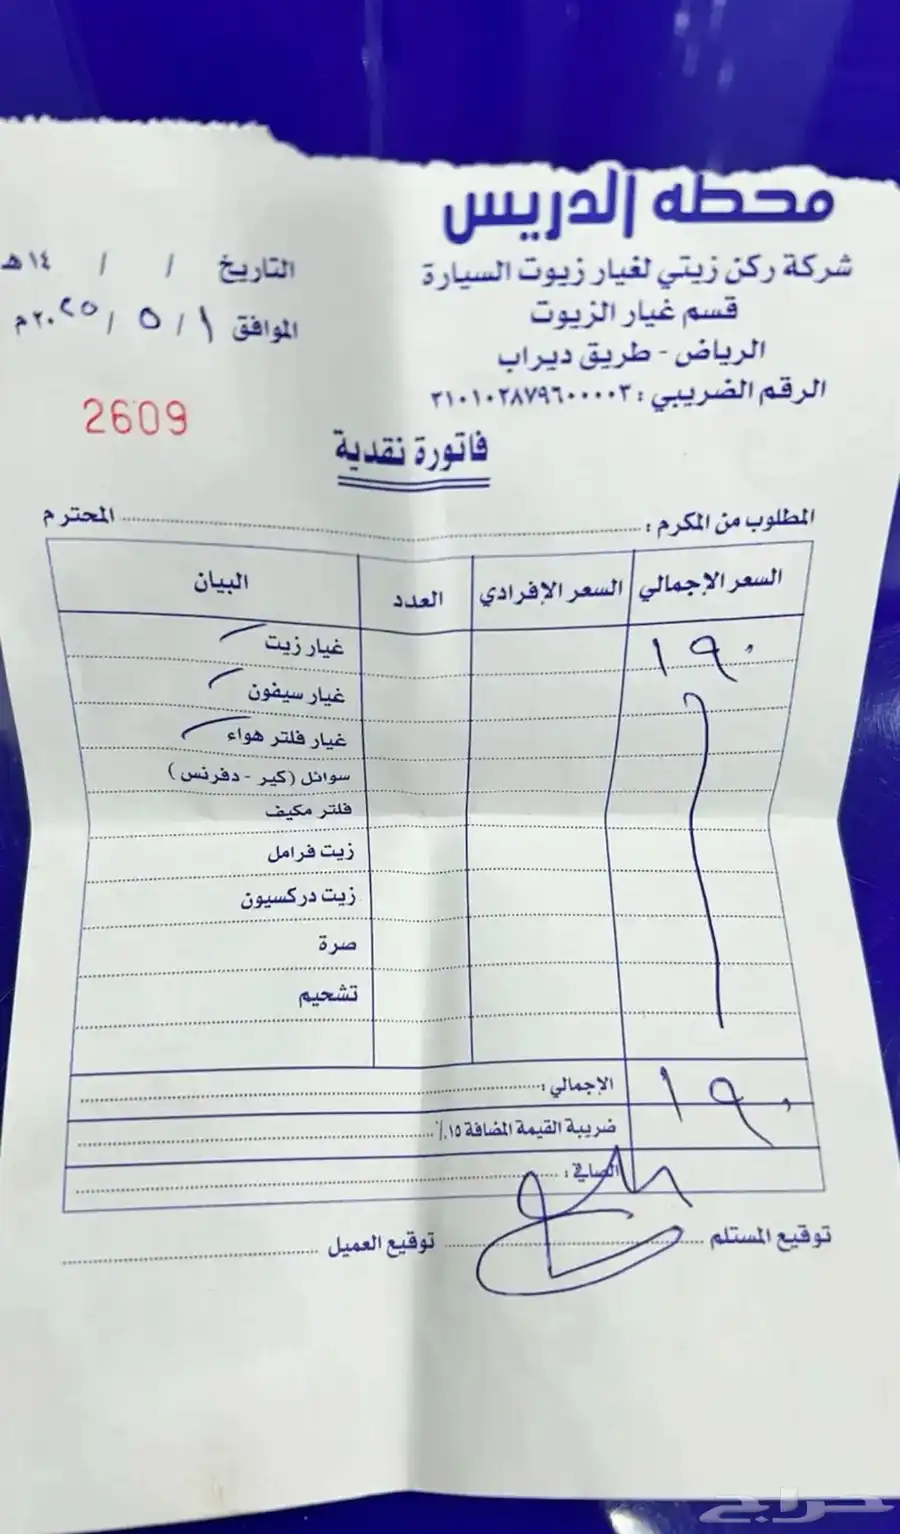 محطه الدريس
شركة ركن زيتي لغيار زيوت السيارة
قسم غيار الزيوت
الرياض - طريق ديراب
الرقم الضريبي : ٣١٠١٠٢٨٧٩٦٠٠٠٠٣
التاريخ / / ١٤هـ
الموافق ١ / ٥ / ٢٠٢٥م
2609
فاتورة نقدية
المطلوب من المكرم : المحترم
السعر الإجمالي السعر الإفرادي العدد البيان
١٩٠ غيار زيت
غيار سيفون
غيار فلتر هواء
سوائل (كير - دفرنس)
فلتر مكيف
زيت فرامل
زيت دركسيون
صرة
تشحيم
١٩٠ الإجمالي :
ضريبة القيمة المضافة ١٥٪
الصافي :
توقيع المستلم توقيع العميل
حراج